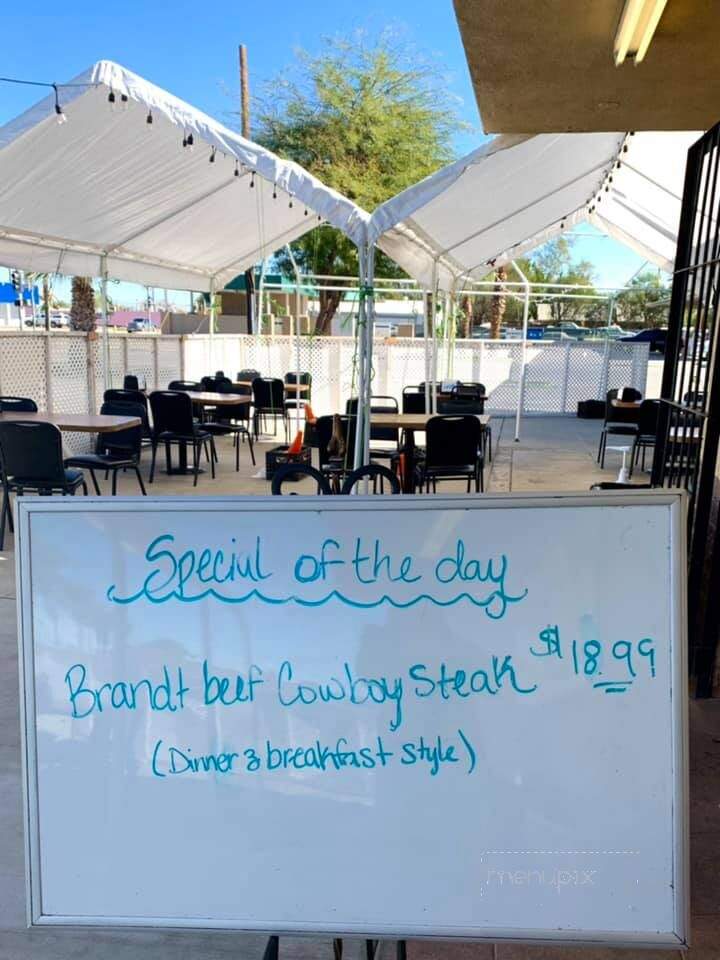 Special of the day
Brandt beef Cowboy Steak $18.99
(Dinner & breakfast style)
menupix